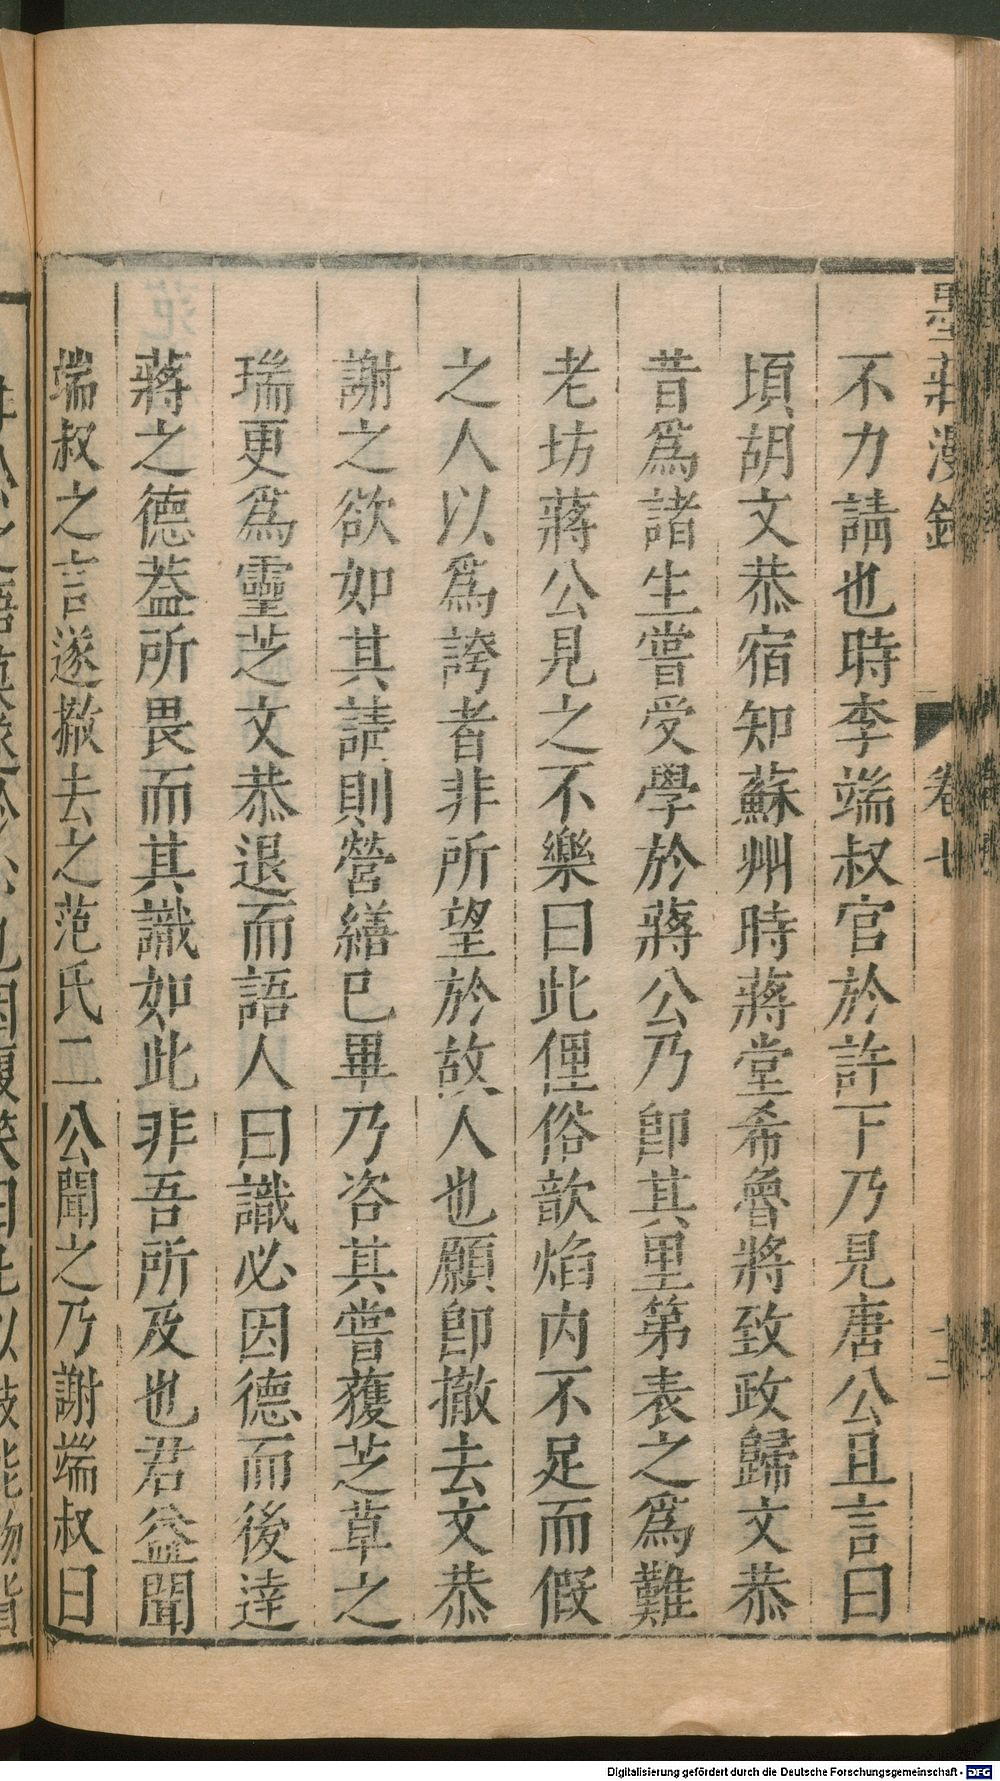 墨莊漫錄
卷七
十二
不力請也時李端叔官於許下乃見唐公且言曰
頃胡文恭宿知蘇州時蔣堂希魯將致政歸文恭
昔為諸生嘗受學於蔣公乃卽其里第表之為難
老坊蔣公見之不樂曰此俚俗歆焰內不足而假
之人以為誇者非所望於故人也願卽撤去文恭
謝之欲如其請則營繕已畢乃咨其嘗獲芝草之
瑞更為靈芝文恭退而語人曰識必因德而後達
蔣之德葢所畏而其識如此非吾所及也君益聞
端叔之言遂撤去之范氏二公聞之乃謝端叔曰
Digitalisierung gefördert durch die Deutsche Forschungsgemeinschaft - DFG